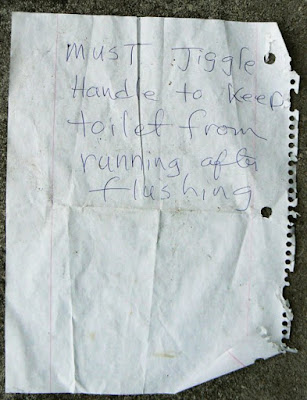 Must Jiggle
Handle to keep
toilet from
running after
flushing